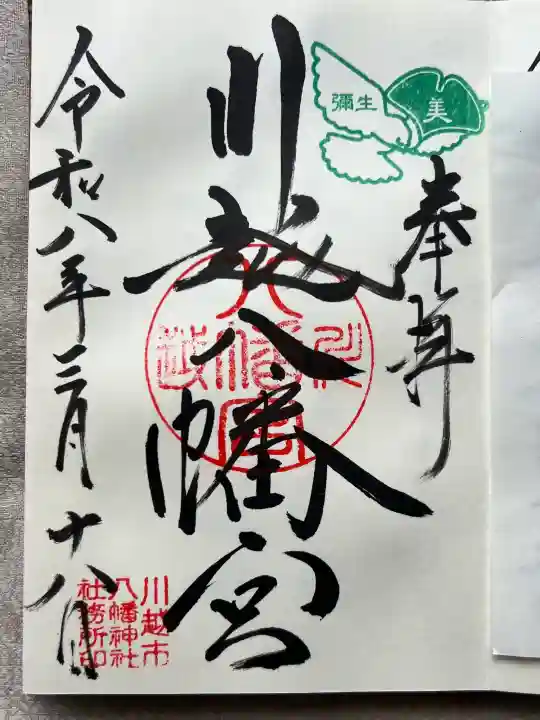 奉拝
彌生
美
川越八幡宮
川
八幡宮
越
令和八年三月十八日
川越市
八幡神社
社務所印